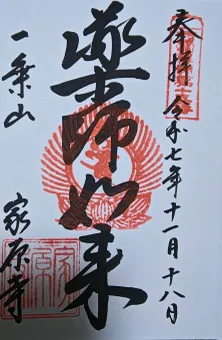 奉拝 令和七年十一月十八日
薬師如来
一乗山
家原寺
家原寺